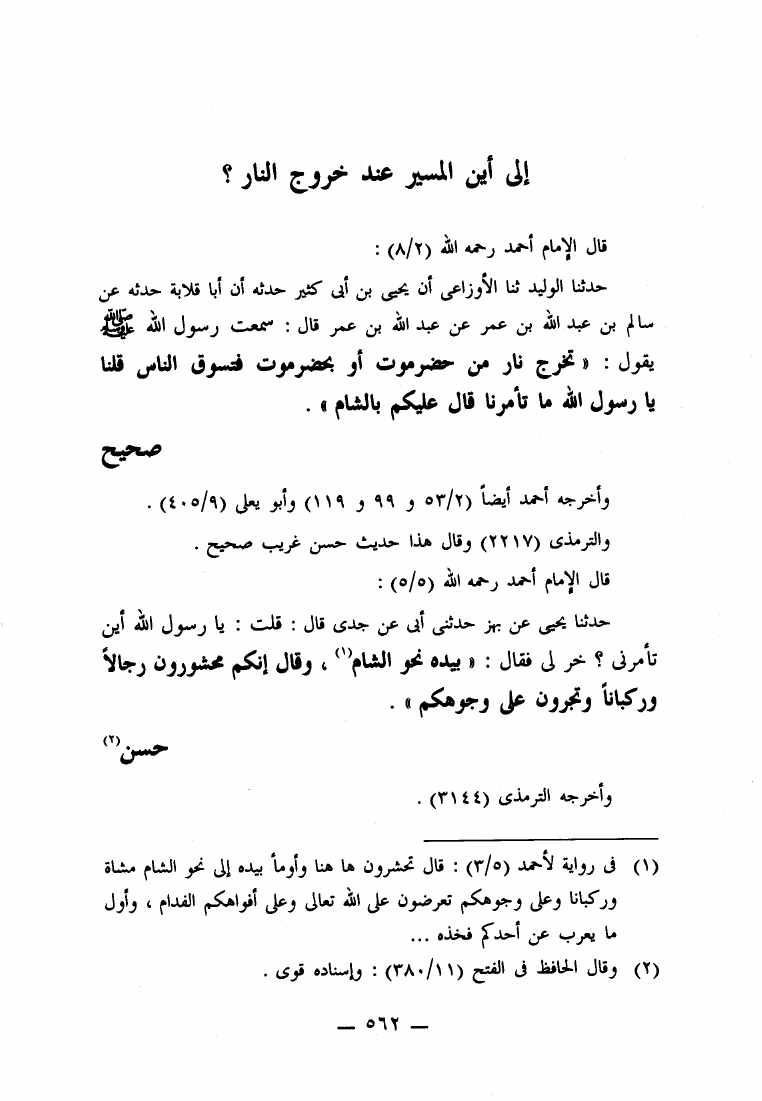 إلى أين المسير عند خروج النار ؟
قال الإمام أحمد رحمه الله (٨/٢) :
حدثنا الوليد ثنا الأوزاعى أن يحيى بن أبى كثير حدثه أن أبا قلابة حدثه عن
سالم بن عبد الله بن عمر عن عبد الله بن عمر قال : سمعت رسول الله ﷺ
يقول : « تخرج نار من حضرموت أو بحضرموت فتسوق الناس قلنا
يا رسول الله ما تأمرنا قال عليكم بالشام » .
صحيح
وأخرجه أحمد أيضاً (٥٣/٢ و ٩٩ و ١١٩) وأبو يعلى (٤٠٥/٩) .
والترمذى (٢٢١٧) وقال هذا حديث حسن غريب صحيح .
قال الإمام أحمد رحمه الله (٥/٥) :
حدثنا يحيى عن بهز حدثنى أبى عن جدى قال : قلت : يا رسول الله أين
تأمرنى ؟ خر لى فقال : « بيده نحو الشام(١) ، وقال إنكم محشورون رجالاً
وركباناً وتجرون على وجوهكم » .
حسن(٢)
وأخرجه الترمذى (٣١٤٤) .
(١) فى رواية لأحمد (٣/٥) : قال تحشرون ها هنا وأومأ بيده إلى نحو الشام مشاة
وركبانا وعلى وجوهكم تعرضون على الله تعالى وعلى أفواهكم الفدام ، وأول
ما يعرب عن أحدكم فخذه ...
(٢) وقال الحافظ فى الفتح (٣٨٠/١١) : وإسناده قوى .
— ٥٦٢ —